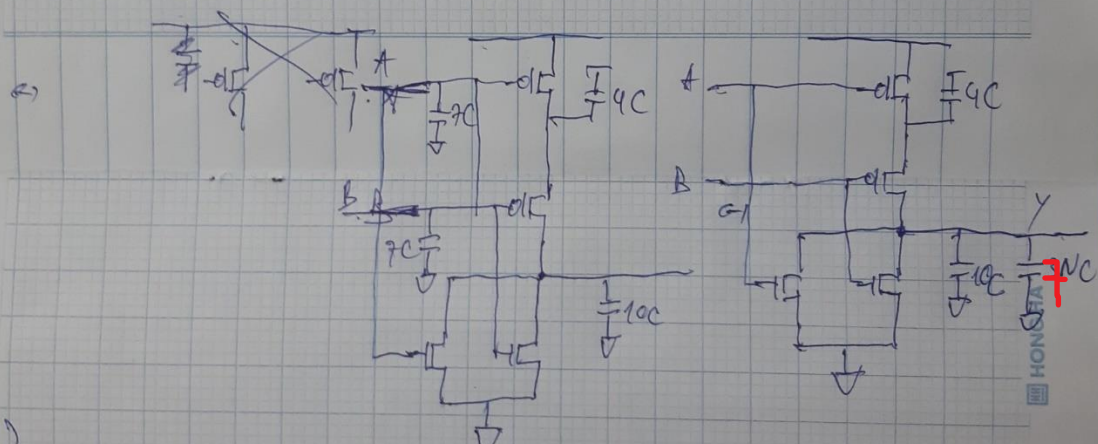 a)
A
7C
4C
B
7C
10C
A
4C
B
Y
10C
7NC
HONG HA